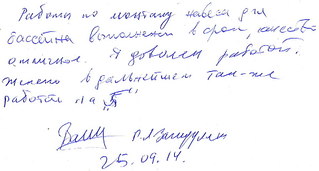 Работы по монтажу навеса для
бассейна выполнены в срок, качество
отличное. Я доволен работой.
Желаю в дальнейшем так-же
работой на "5"
25.09.14.